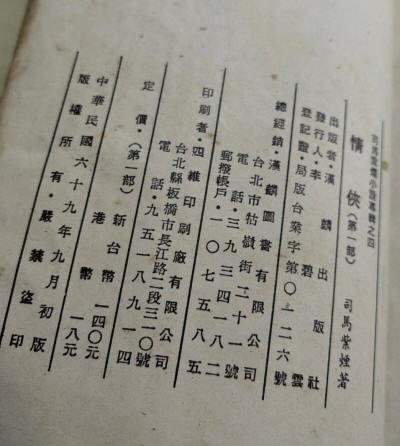 司馬紫煙小說專輯之四
情俠（第一部）
司馬紫煙著
出版者·漢麟出版社
發行人·李碧雲
登記證·局版台業字第〇一二六號
總經銷·漢麟圖書有限公司
台北市牯嶺街二十一號
電話·三九三四一八二
郵撥帳戶·一〇七五八五
印刷者·四維印刷廠有限公司
台北縣板橋市長江路二段三二〇號
電話·九五一八九一四
定價·（第一部）新台幣一四〇元
港幣一八元
中華民國六十九年九月初版
版權所有·嚴禁盜印